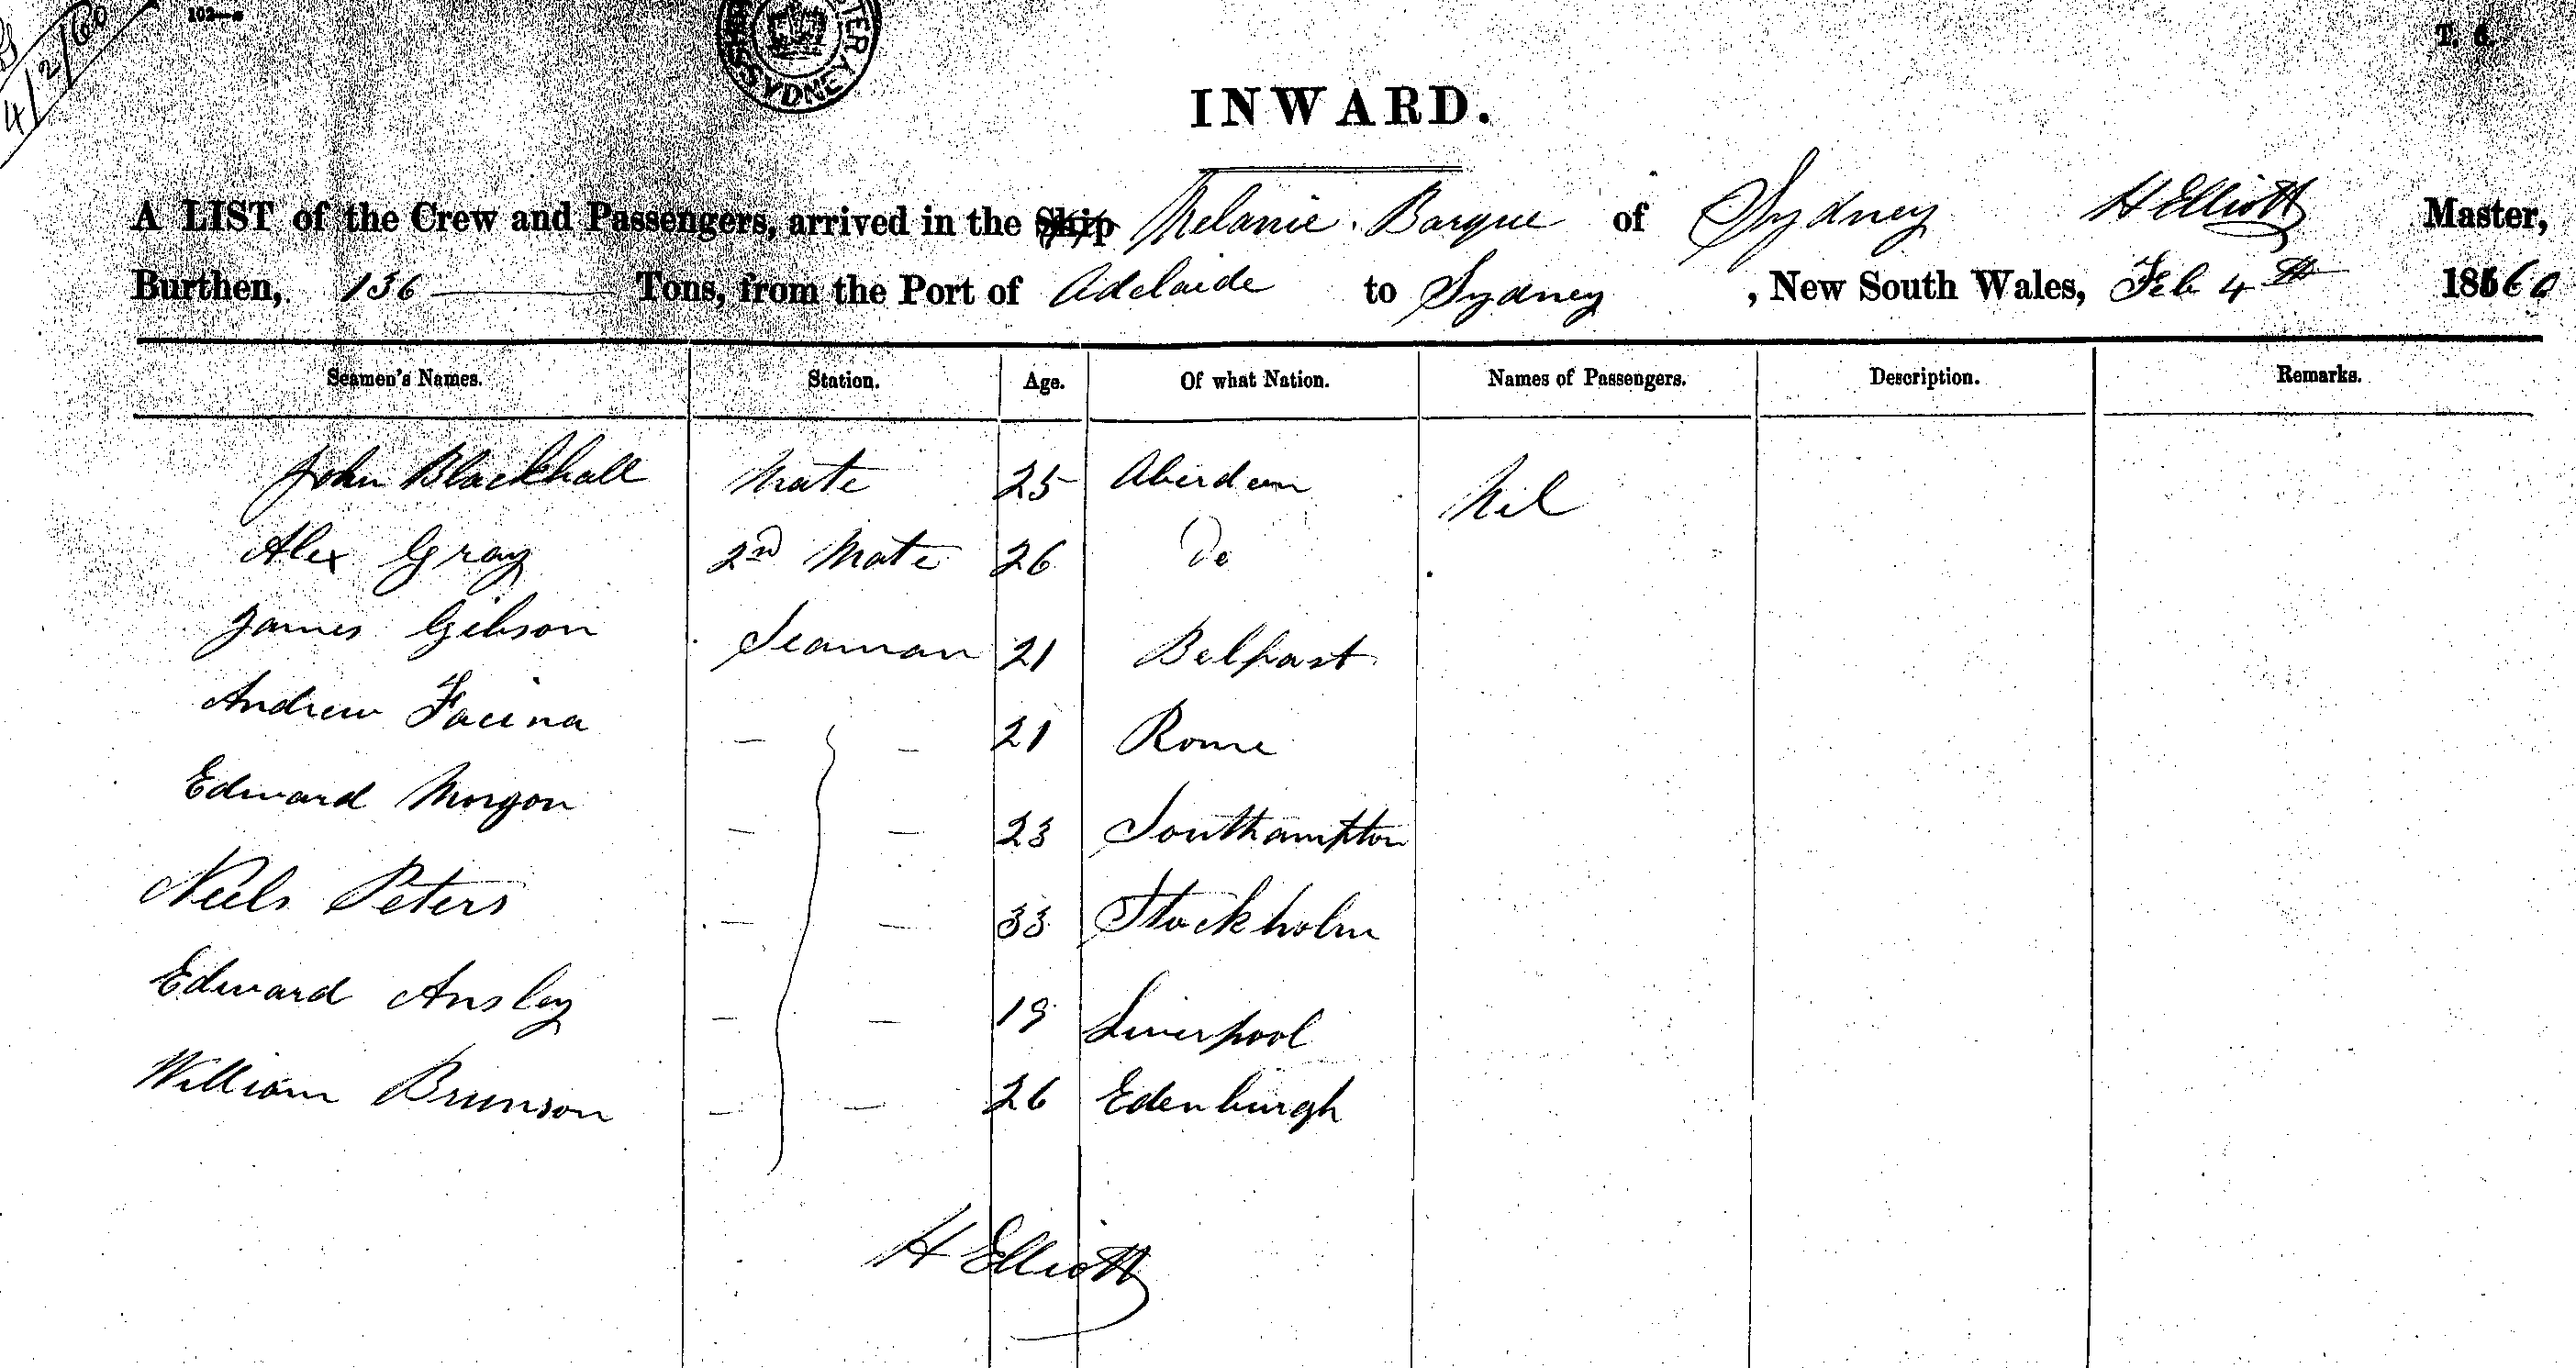 4/2/60
102—
TER SYDNEY
T. 6.
INWARD.
A LIST of the Crew and Passengers, arrived in the Ship Melanie. Barque of Sydney H Elliott Master,
Burthen, 136 Tons, from the Port of Adelaide to Sydney, New South Wales, Feb 4th 1860
Seamen's Names. Station. Age. Of what Nation. Names of Passengers. Description. Remarks.
John Blackhall Mate 25 Aberdeen Nil
Alex Gray 2nd Mate 26 Do
James Gibson Seaman 21 Belfast
Andrew Facina — — 21 Rome
Edward Morgon — — 23 Southampton
Neels Peters — — 33 Stockholm
Edward Ansley — — 19 Liverpool
William Brunson — — 26 Edenburgh
H Elliott